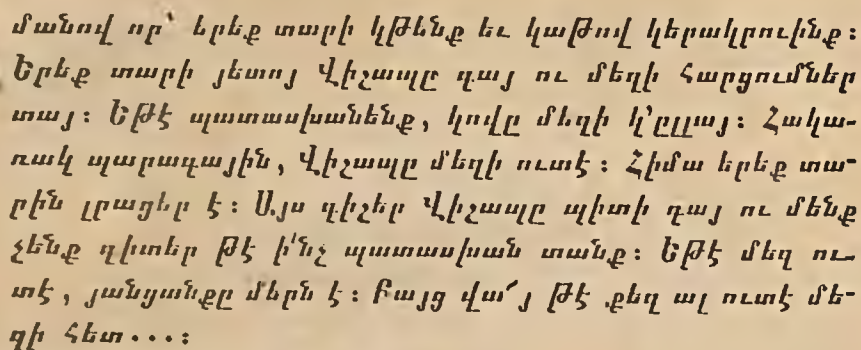 մանով որ՝ երեք տարի կթենք եւ կաթով կերակրուինք։
Երեք տարի յետոյ Վիշապը գայ ու մեզի Հարցումներ
տայ։ Եթէ պատասխանենք, կովը մեզի կ՚ըլլայ։ Հակա-
ռակ պարագային, Վիշապը մեզի ուտէ։ Հիմա երեք տա-
րին լրացեր է։ Այս գիշեր Վիշապը պիտի գայ ու մենք
չենք գիտեր թէ ի՛նչ պատասխան տանք։ Եթէ մեզ ու-
տէ, յանցանքը մերն է։ Բայց վա՜յ թէ քեզ ալ ուտէ մե-
զի Հետ...։